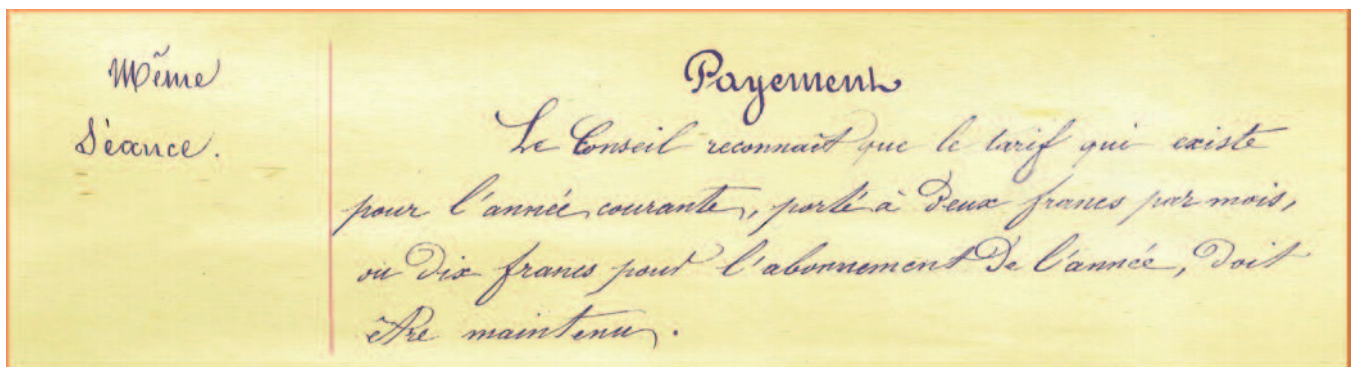 Même
Séance.
Payement
Le Conseil reconnaît que le tarif qui existe
pour l'année courante, porté à Deux francs par mois,
ou Dix francs pour l'abonnement De l'année, Doit
être maintenu.